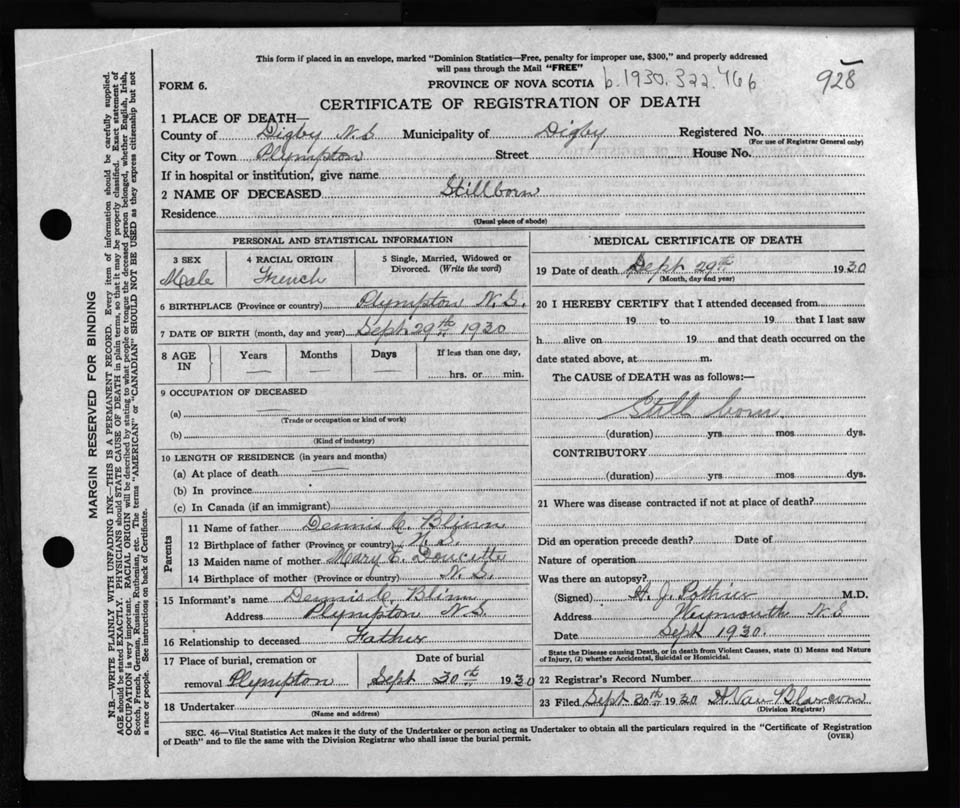 This form if placed in an envelope, marked "Dominion Statistics—Free, penalty for improper use, $300," and properly addressed
will pass through the Mail "FREE"
FORM 6.
PROVINCE OF NOVA SCOTIA b.1930.322.466
928
CERTIFICATE OF REGISTRATION OF DEATH
1 PLACE OF DEATH—
County of Digby N.S. Municipality of Digby Registered No.
(For use of Registrar General only)
City or Town Plympton Street House No.
If in hospital or institution, give name
2 NAME OF DECEASED Stillborn
Residence
(Usual place of abode)
PERSONAL AND STATISTICAL INFORMATION
3 SEX 4 RACIAL ORIGIN 5 Single, Married, Widowed or
Divorced. (Write the word)
Male French
6 BIRTHPLACE (Province or country) Plympton N.S.
7 DATE OF BIRTH (month, day and year) Sept 29th 1930
8 AGE IN Years Months Days If less than one day,
— — — hrs. or min.
9 OCCUPATION OF DECEASED
(a) —
(Trade or occupation or kind of work)
(b)
(Kind of industry)
10 LENGTH OF RESIDENCE (in years and months)
(a) At place of death —
(b) In province
(c) In Canada (if an immigrant)
Parents
11 Name of father Dennis C. Blinn
12 Birthplace of father (Province or country) N.S.
13 Maiden name of mother Mary E. Doucette
14 Birthplace of mother (Province or country) N.S.
15 Informant's name Dennis C. Blinn
Address Plympton N.S.
16 Relationship to deceased Father
17 Place of burial, cremation or Date of burial
removal Plympton Sept 30th 1930
18 Undertaker
(Name and address)
MEDICAL CERTIFICATE OF DEATH
19 Date of death Sept 29th 1930
(Month, day and year)
20 I HEREBY CERTIFY that I attended deceased from
19 to 19 that I last saw
h alive on 19 and that death occurred on the
date stated above, at m.
The CAUSE of DEATH was as follows:—
Still born
(duration) yrs mos dys.
CONTRIBUTORY
(duration) yrs. mos. dys.
21 Where was disease contracted if not at place of death?
Did an operation precede death? Date of
Nature of operation
Was there an autopsy?
(Signed) H. J. Pothier M.D.
Address Weymouth N.S
Date Sept 1930.
State the Disease causing Death, or in death from Violent Causes, state (1) Means and Nature
of Injury, (2) whether Accidental, Suicidal or Homicidal.
22 Registrar's Record Number
23 Filed Sept 30th 1930 H Van Blarcom
(Division Registrar)
SEC. 46—Vital Statistics Act makes it the duty of the Undertaker or person acting as Undertaker to obtain all the particulars required in the "Certificate of Registration
of Death" and to file the same with the Division Registrar who shall issue the burial permit.
(OVER)
MARGIN RESERVED FOR BINDING
N.B.—WRITE PLAINLY WITH UNFADING INK—THIS IS A PERMANENT RECORD. Every item of information should be carefully supplied.
AGE should be stated EXACTLY. PHYSICIANS should STATE CAUSE OF DEATH in plain terms, so that it may be properly classified. Exact statement of
OCCUPATION is very important. RACIAL ORIGIN will be described by stating to what people or tongue the deceased person belonged, whether English, Irish,
Scotch, French, German, Russian, Ruthenian, etc. The terms "AMERICAN" or "CANADIAN" SHOULD NOT BE USED as they express citizenship but not
a race or people. See instructions on back of Certificate.